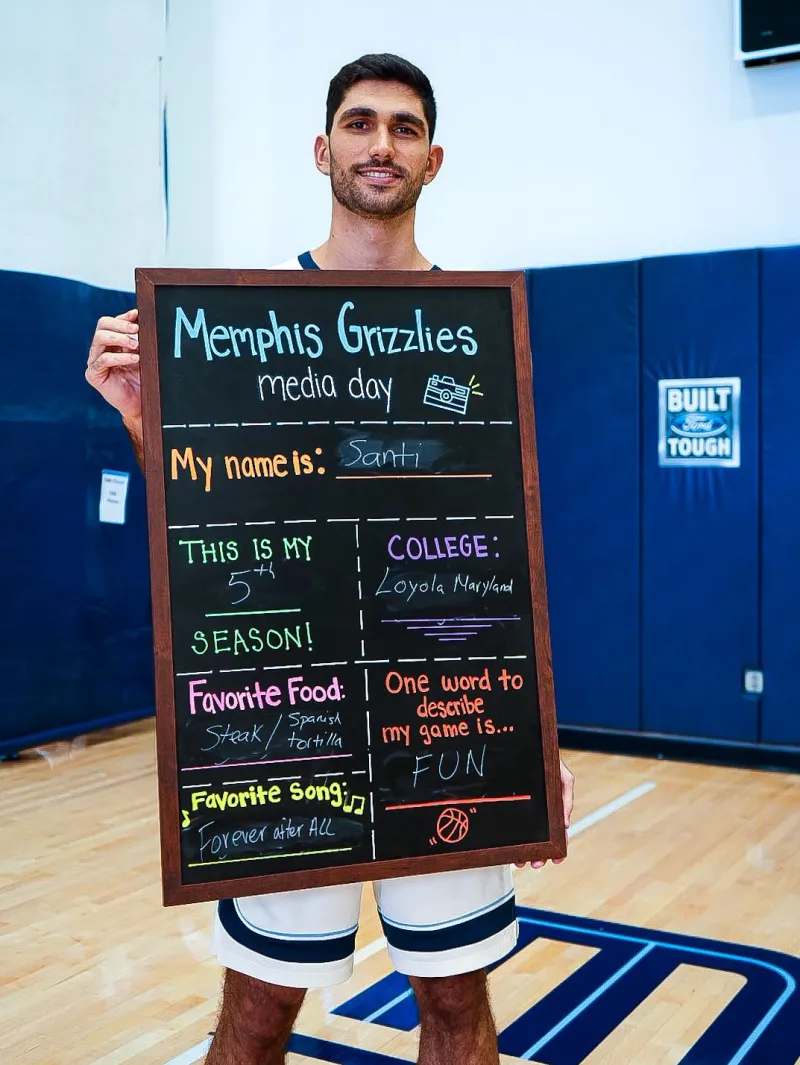 Memphis Grizzlies
media day
My name is: Santi
THIS IS MY
5th
SEASON!
COLLEGE:
Loyola Maryland
Favorite Food:
Steak / Spanish
tortilla
One word to
describe
my game is...
FUN
Favorite Song:
Forever after All
BUILT
Ford
TOUGH